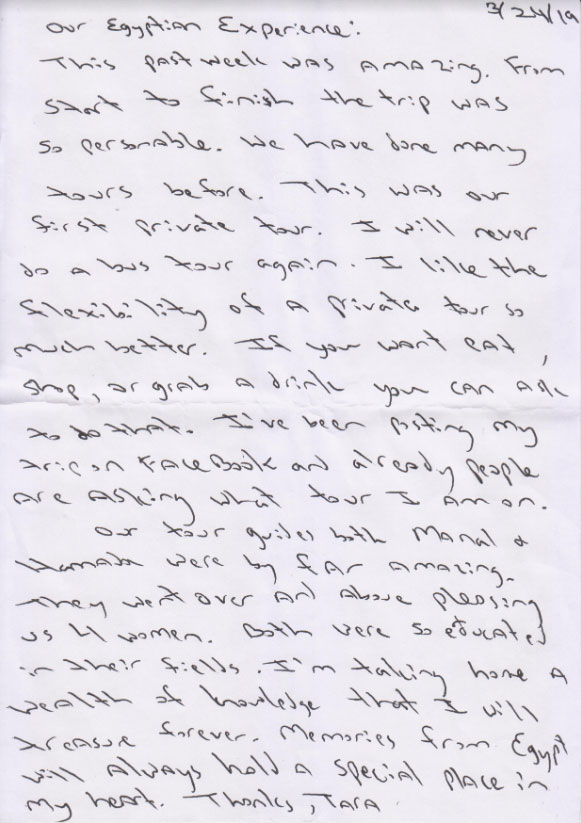 3/24/19
Our Egyptian Experience:
This past week was amazing. From
start to finish the trip was
so personable. We have done many
tours before. This was our
first private tour. I will never
do a bus tour again. I like the
flexibility of a private tour so
much better. If you want eat,
shop, or grab a drink you can ask
to do that. I've been posting my
trip on FaceBook and already people
are asking what tour I am on.
Our tour guides both Manal &
Hamada were by far amazing.
They went over and above pleasing
us 4 women. Both were so educated
in their fields. I'm taking home a
wealth of knowledge that I will
treasure forever. Memories from Egypt
will always hold a special place in
my heart. Thanks, Tara